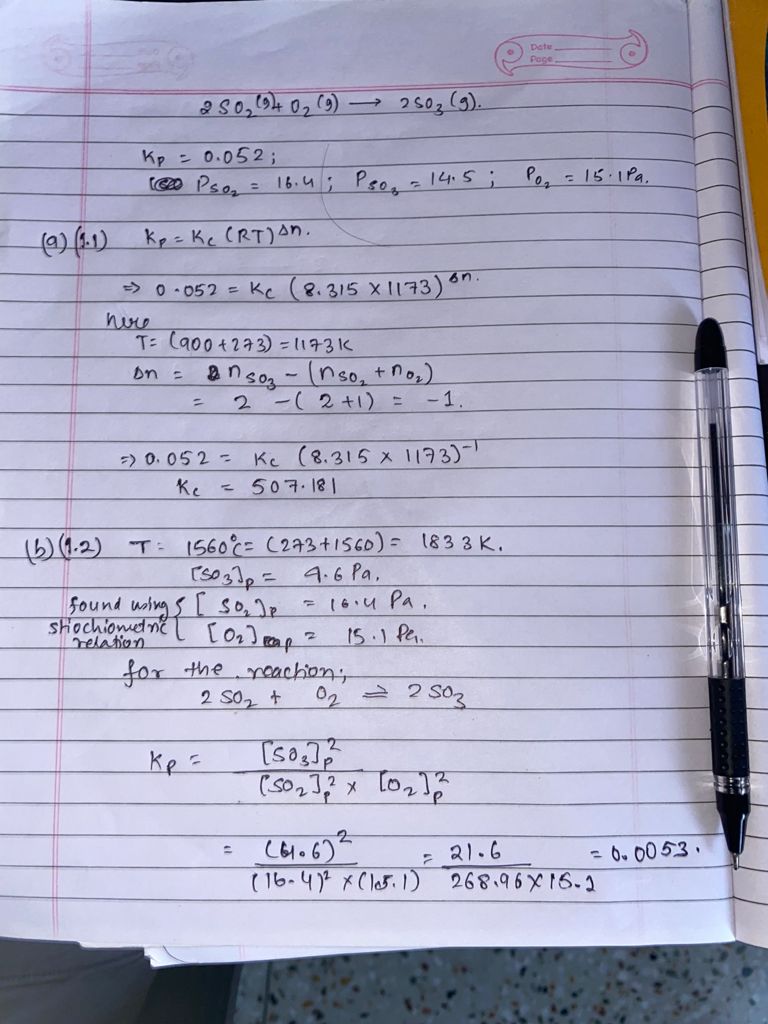 Date
Page
2SO₂(g)+ O₂(g) → 2SO₃(g).
Kp = 0.052;
P SO₂ = 16.4; P SO₃ = 14.5; P O₂ = 15.1 Pa.
(a) (1.1) Kp = Kc (RT)^Δn.
⇒ 0.052 = Kc (8.315 × 1173)^Δn.
here
T= (900+273) = 1173K
Δn = n SO₃ - (n SO₂ + n O₂)
= 2 - (2+1) = -1.
⇒ 0.052 = Kc (8.315 × 1173)⁻¹
Kc = 507.181
(b) (1.2) T = 1560°C = (273+1560) = 1833K.
[SO₃]p = 4.6 Pa,
found using { [SO₂]p = 16.4 Pa.
stiochiometric { [O₂]p = 15.1 Pa.
relation
for the reaction;
2SO₂ + O₂ ⇌ 2SO₃
Kp = [SO₃]p² / [SO₂]p² × [O₂]p²
= (4.6)² / (16.4)² × (15.1) = 21.6 / 268.96×15.1 = 0.0053.